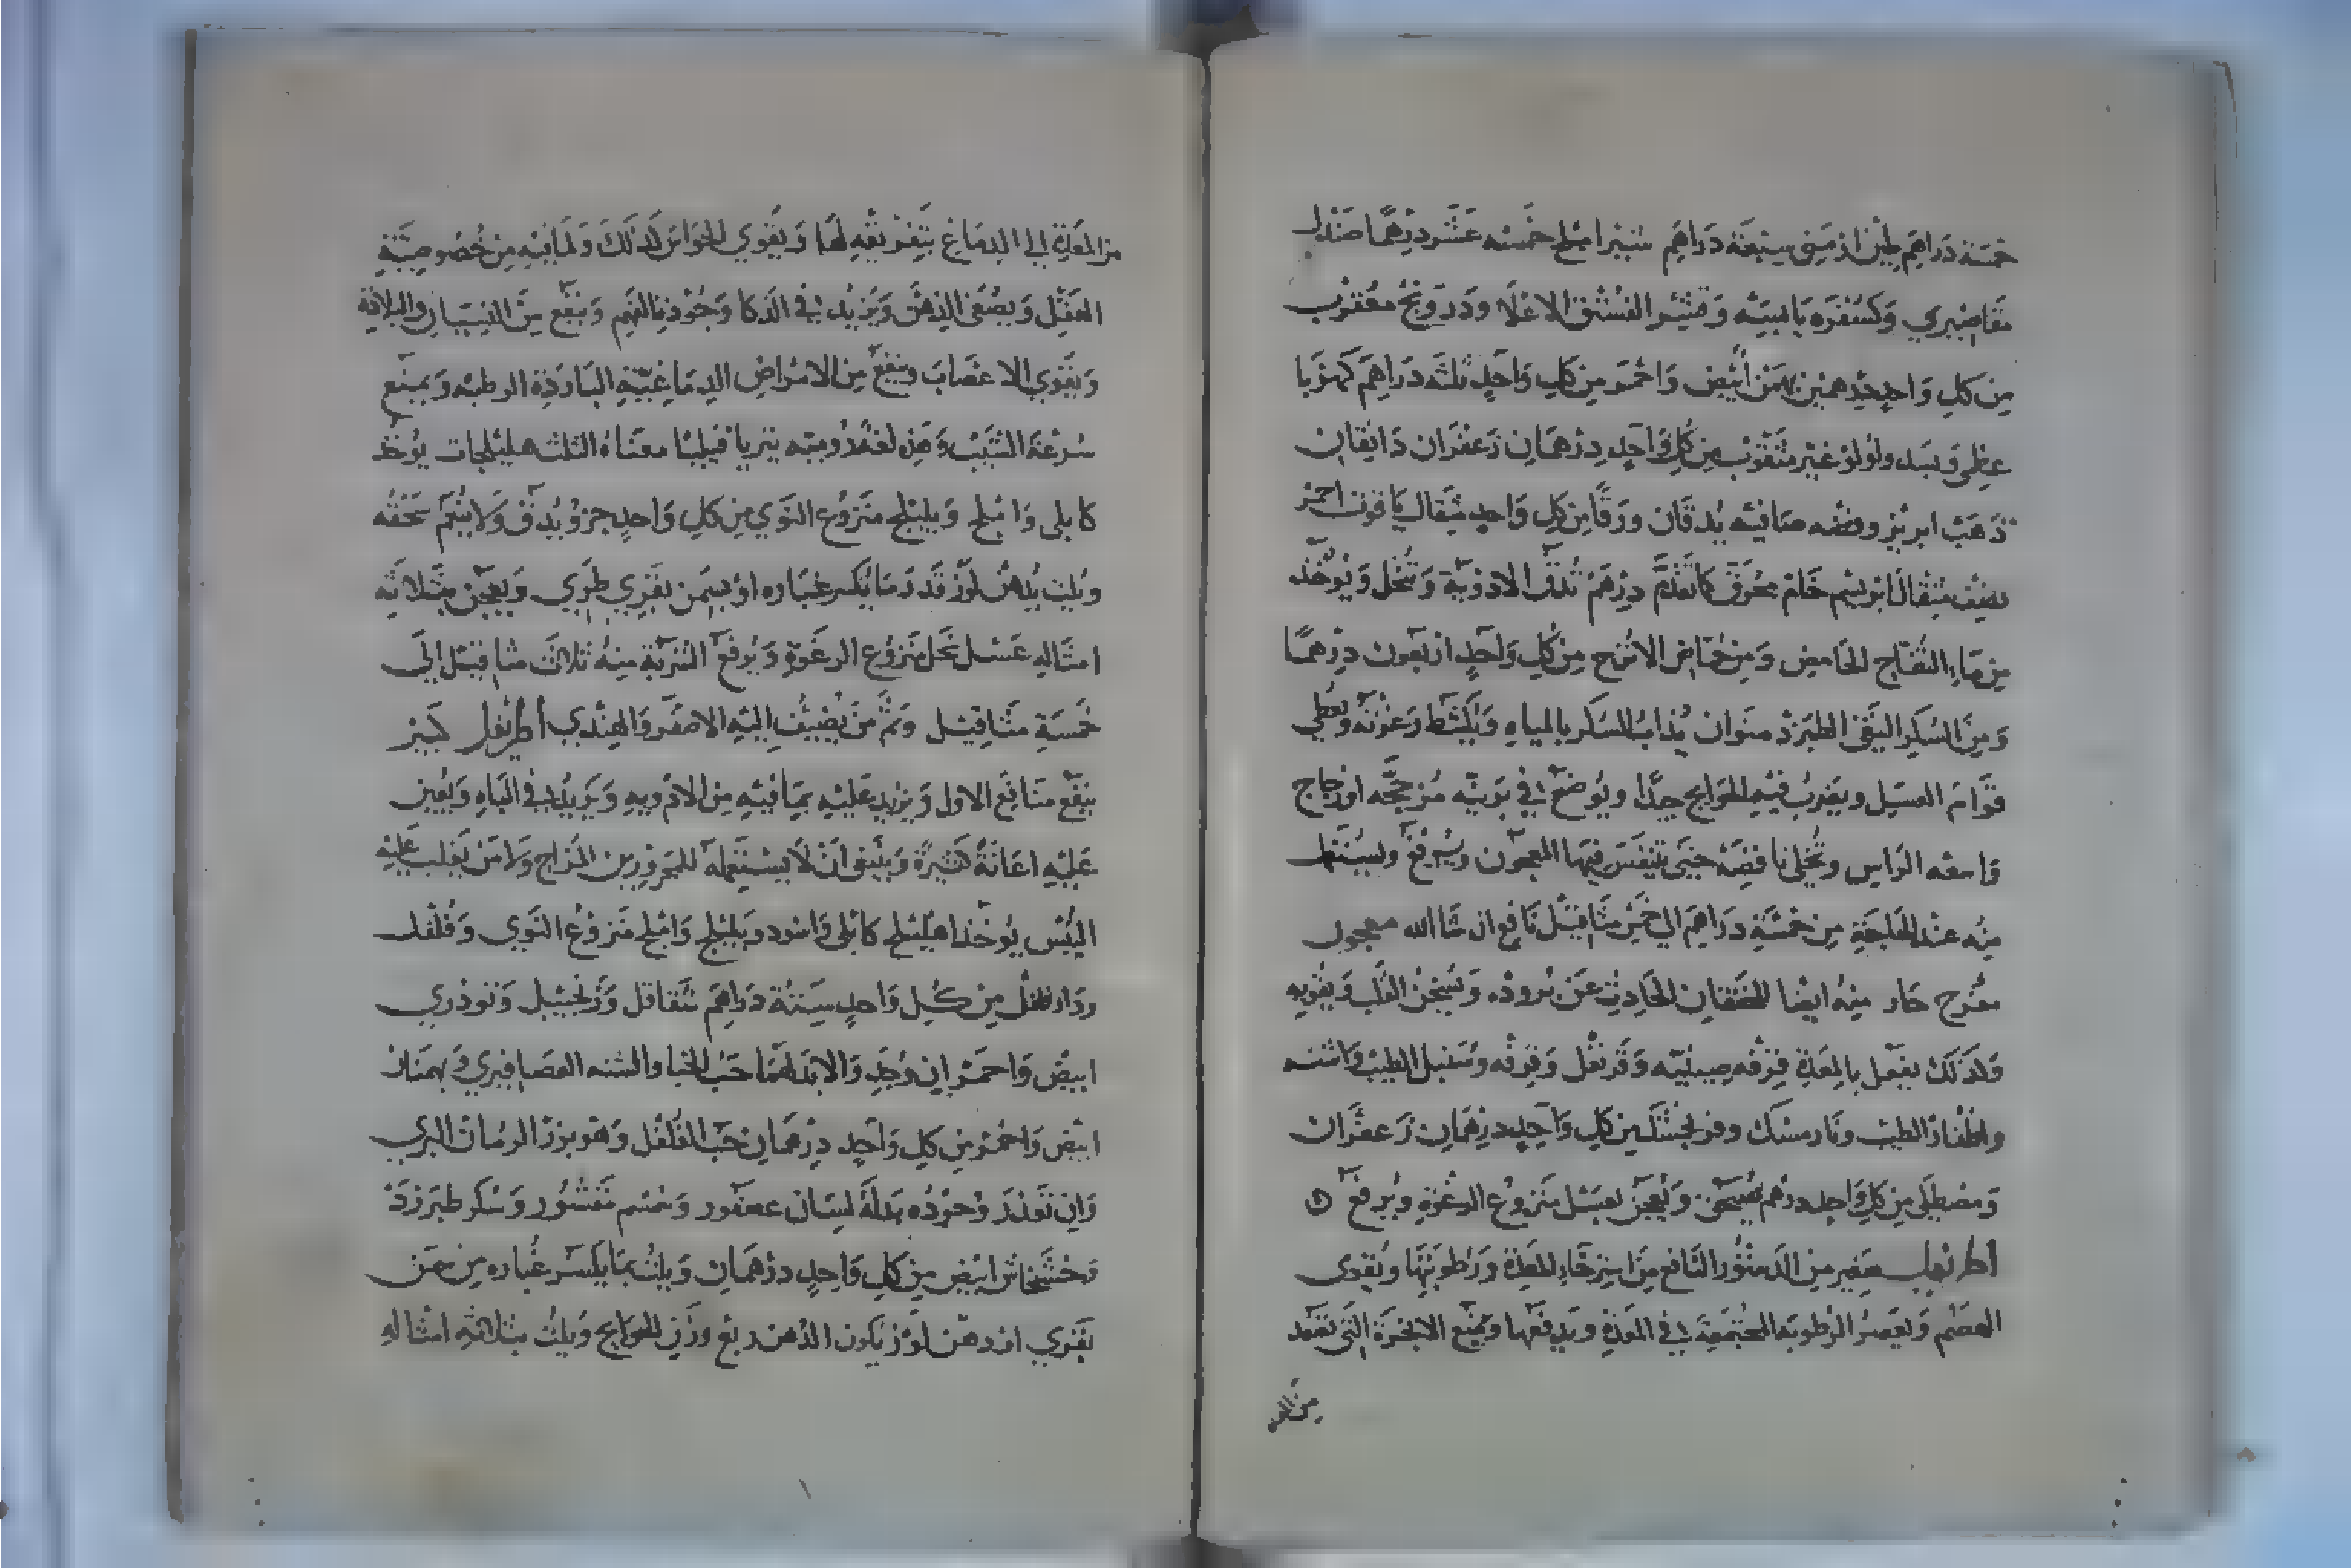 خمسة دراهم طين ارمني سبعة دراهم شيراملج خمسه عشر درهما صندل
مقاصيري وكسفره يابسه وقشر الفستق الاعلا ودرونج معقرب
من كل واحد درهمين بهمن ابيض واحمر من كل واحد ثلثه دراهم كهربا
وبسد ولولو غير مثقوب من كل واحد درهمان زعفران دانقان
ذهب ابريز وفضه صافيه يدقان ورقا من كل واحد مثقال ياقوت احمر
نصف مثقال ابريسم خام محرق كما تقدم درهم تدق الادوية وتنخل ويوخذ
من ماء التفاح الحامض ومن حماض الاترج من كل واحد اربعون درهما
ومن السكر النقي الطبرزد منوان يذاب السكر بالمياه وتكشط رغوته ويعطى
قوام العسل ويضرب فيه الحوايج جدا ويوضع في برنيه مزججه او زجاج
واسعه الراس وتخلى ناقصه حتى يتنفس فيها المعجون ويرفع ويستعمل
منه عند الحاجة من خمسة دراهم الى خمس مثاقيل نافع ان شا الله معجون
مفرح حار منه ايضا للخفقان الحادث عن بروده ويسخن القلب ويقويه
وكذلك يفعل بالمعدة قرفه صينيه وقرنفل وقرفه وسنبل الطيب واشنه
واظفار الطيب ونارمسك وفرنجمشك من كل واحد درهمان زعفران
ومصطكى من كل واحد درهم يسحق ويعجن بعسل منزوع الرغوة ويرفع
اطريفل صغير من الدستور النافع من استرخاء المعدة ورطوبتها ويقوى
الهضم ويعصر الرطوبه المجتمعة في المعدة ويدفعها ويمنع الابخرة التي تصعد
من المعدة الى الدماغ بتقويته لها ويقوي الحواس كذلك ولما فيه من خصوصية
العقل ويصفى الذهن ويزيد في الذكا وجودة الفهم وينفع من النسيان والبلادة
ويقوي الاعصاب وينفع من الامراض الدماغية الباردة الرطبه ويمنع
سرعة الشيب وهذه لغة روميه تريافيليا معناه الثلث هليلجات يوخذ
كابلى واملج وبليلج منزوع النوي من كل واحد جزو يدق ولا ينعم سحقه
ويلت بدهن لوز قدر ما يكسر غباره او بسمن بقري طري ويعجن بثلاثه
امثاله عسل نحل منزوع الرغوة ويرفع الشربة منه ثلاث مثاقيل الى
خمسة مثاقيل وثم من يضيف اليه الاصفر والهندي اطريفل كبير
ينفع منافع الاول ويزيد عليه بما فيه من الادويه ويزيد في الباه ويعين
عليه اعانة كثيرة وينبغى ان لا يستعمله المحرورين المزاج ولا من يغلب عليه
اليبس يوخذ اهليلج كابلى واسود وبليلج واملج منزوع النوي وفلفل
ودارفلفل من كل واحد ستة دراهم شقاقل وزنجبيل وتودري
ابيض واحمر ان وجد والا بدلهما حب والشنه العصافيري وبهمنان
ابيض واحمر من كل واحد درهمان حب الفلفل وهو بزر الرمان البري
وان تعذر وجوده بدله لسان عصفور وسمسم مقشور وسكر طبرزد
وخشخاش ابيض من كل واحد درهمان ويلت بما يكسر غباره من سمن
بقري او دهن لوز يكون الدهن ربع وزن الحوايج ويلت بثلاثة امثاله